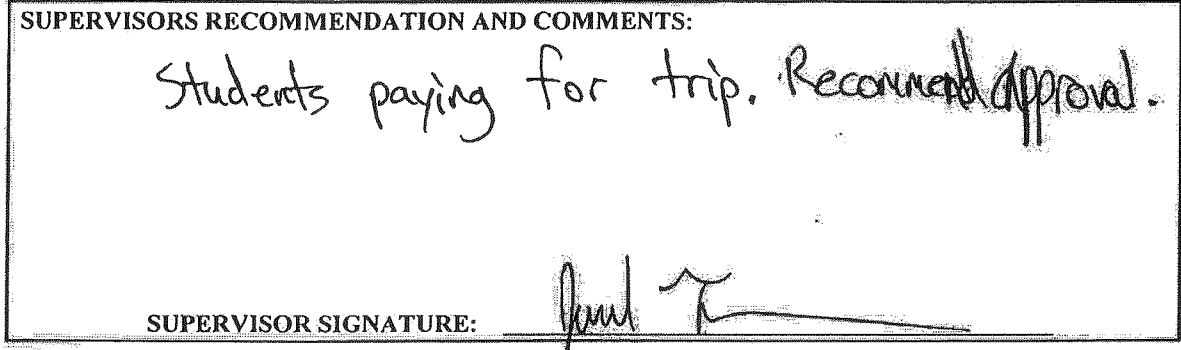 SUPERVISORS RECOMMENDATION AND COMMENTS:
Students paying for trip. Recommend Approval.
SUPERVISOR SIGNATURE: